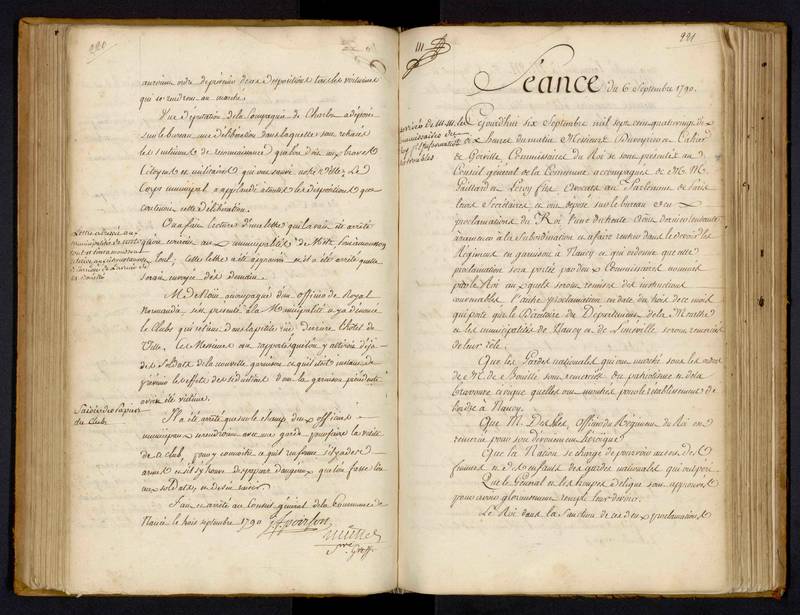 220
aucun ordre de
dispositions tous les voituriers
qui se rendront au marché.
Une Députation de la Compagnie de Charlon a déposée
sur le bureau une délibération dans laquelle sont retracés
les sentimens de reconnaissance qu'on doit aux braves
Citoyens et militaires qui ont sauvé notre Ville; Le
Corps municipal a applaudi à toutes les dispositions que
contenoit cette délibération.
Lettre adressée aux
municipalités de metz
toul et Pont a mousson
On a fait lecture d'une lettre qu'il avoit été arrêté
aux municipalités de Metz, Pontamousson
et Toul; Cette lettre a été approuvée et il a été arrêté qu'elle
seroit envoyée dès demain.
M. de Noüe accompagné d'un officier de Royal
Normandie s'est présenté à la Municipalité et y a dénoncé
le Club qui se tient dans la petite rüe derriere l'hôtel de
Ville. Ces Messieurs ont rapporté qu'on y attiroit déjà
des soldats de la nouvelle garnison et qu'il étoit instant de
prévenir les effets des séductions dont la garnison précédente
avoit été victime.
Saisie des Papiers
du Club.
Il a été arrêté que sur le champ deux officiers
municipaux se rendroient avec une garde pour faire la visite
de ce club, pour y connoître ce qu'il renferme s'il y a des
armes et s'il y a des papiers dangereux que l'on fasse lire
aux soldats, et d'en saisir.
Fait et arrêté au Conseil général de la Commune de
Nancy le trois septembre 1790
Poirson
Mulnier
Sre Greff.
221
Séance du 6 Septembre 1790.
arrivée de M.M. les
Commissaires du
Roy pr l'information
des troubles
Cejourd'hui six Septembre mil sept cent quatrevingt dix
heures du matin Messieurs Duveyrier et Cahier
de Gerville, Commissaires du Roi se sont présentés au
Conseil général de la Commune accompagnés de M.M.
Gaillard et Leroy fils Avocats au Parlement de Paris
leurs Secrétaires et ont déposé sur le bureau deux
proclamations du Roi l'une du trente Août dernier tendante
à ramener à la Subordination et à faire rentrer dans le devoir les
Régimens en garnison à Nancy et qui ordonne que cette
proclamation sera portée par deux Commissaires nommés
par le Roi auxquels seront remises des instructions
convenables. l'autre proclamation en date du trois de ce mois
qui porte que le Directoire du Département de la Meurthe
et les municipalités de Nancy et de Lunéville seront remerciés
de leur zèle.
Que les Gardes nationales qui ont marché sous les ordres
de M. de Bouillé sont remerciées du patriotisme et de la
bravoure civique qu'elles ont montrés pour le rétablissement de
l'ordre à Nancy.
Que M. Desilles, Officier du Régiment du Roi est
remercié pour son dévouement héroïque.
Que la Nation se charge de pourvoir au sort des
femmes et des enfants des gardes nationales qui ont péri.
Que le Général et les troupes de ligne sont approuvés
pour avoir glorieusement rempli leur devoir.
Le Roi dans la Sanction de ces deux proclamations